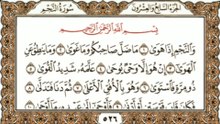 الجزء السابع والعشرون سورة النجم
بسم الله الرحمن الرحيم
والنجم إذا هوى ١ ما ضل صاحبكم وما غوى ٢ وما ينطق عن
الهوى ٣ إن هو إلا وحي يوحى ٤ علمه شديد القوى ٥
ذو مرة فاستوى ٦ وهو بالأفق الأعلى ٧ ثم دنا فتدلى ٨
٥٢٦